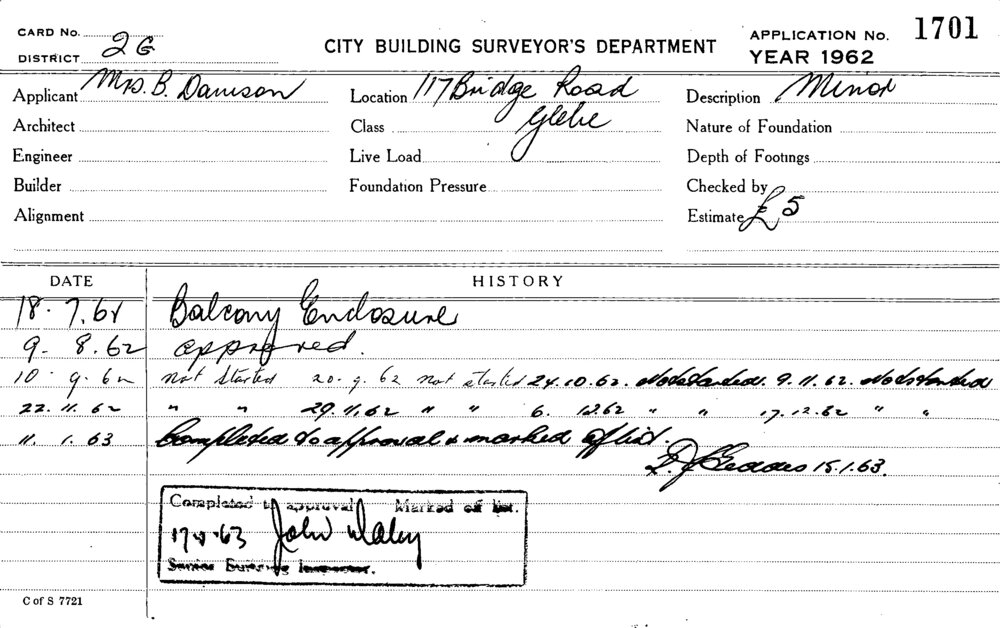 CARD No.
DISTRICT 2G
CITY BUILDING SURVEYOR'S DEPARTMENT
APPLICATION No. 1701
YEAR 1962
Applicant Mrs. B. Davison
Location 117 Bridge Road
Glebe
Description Minor
Architect
Class
Nature of Foundation
Engineer
Live Load
Depth of Footings
Builder
Foundation Pressure
Checked by
Alignment
Estimate £5
DATE HISTORY
18. 7. 62 Balcony Enclosure
9. 8. 62 approved.
10. 9. 62 not started 20. 9. 62 not started 24.10.62. Not started. 9.11.62. Not started
22. 11. 62 " " 29.11.62 " " 6. 12.62 " " 17.12.62 " "
11. 1. 63 Completed to approval & marked off list.
Geddes 15.1.63.
Completed to approval Marked off list.
63 John Daley
Senior Building Inspector.
C of S 7721